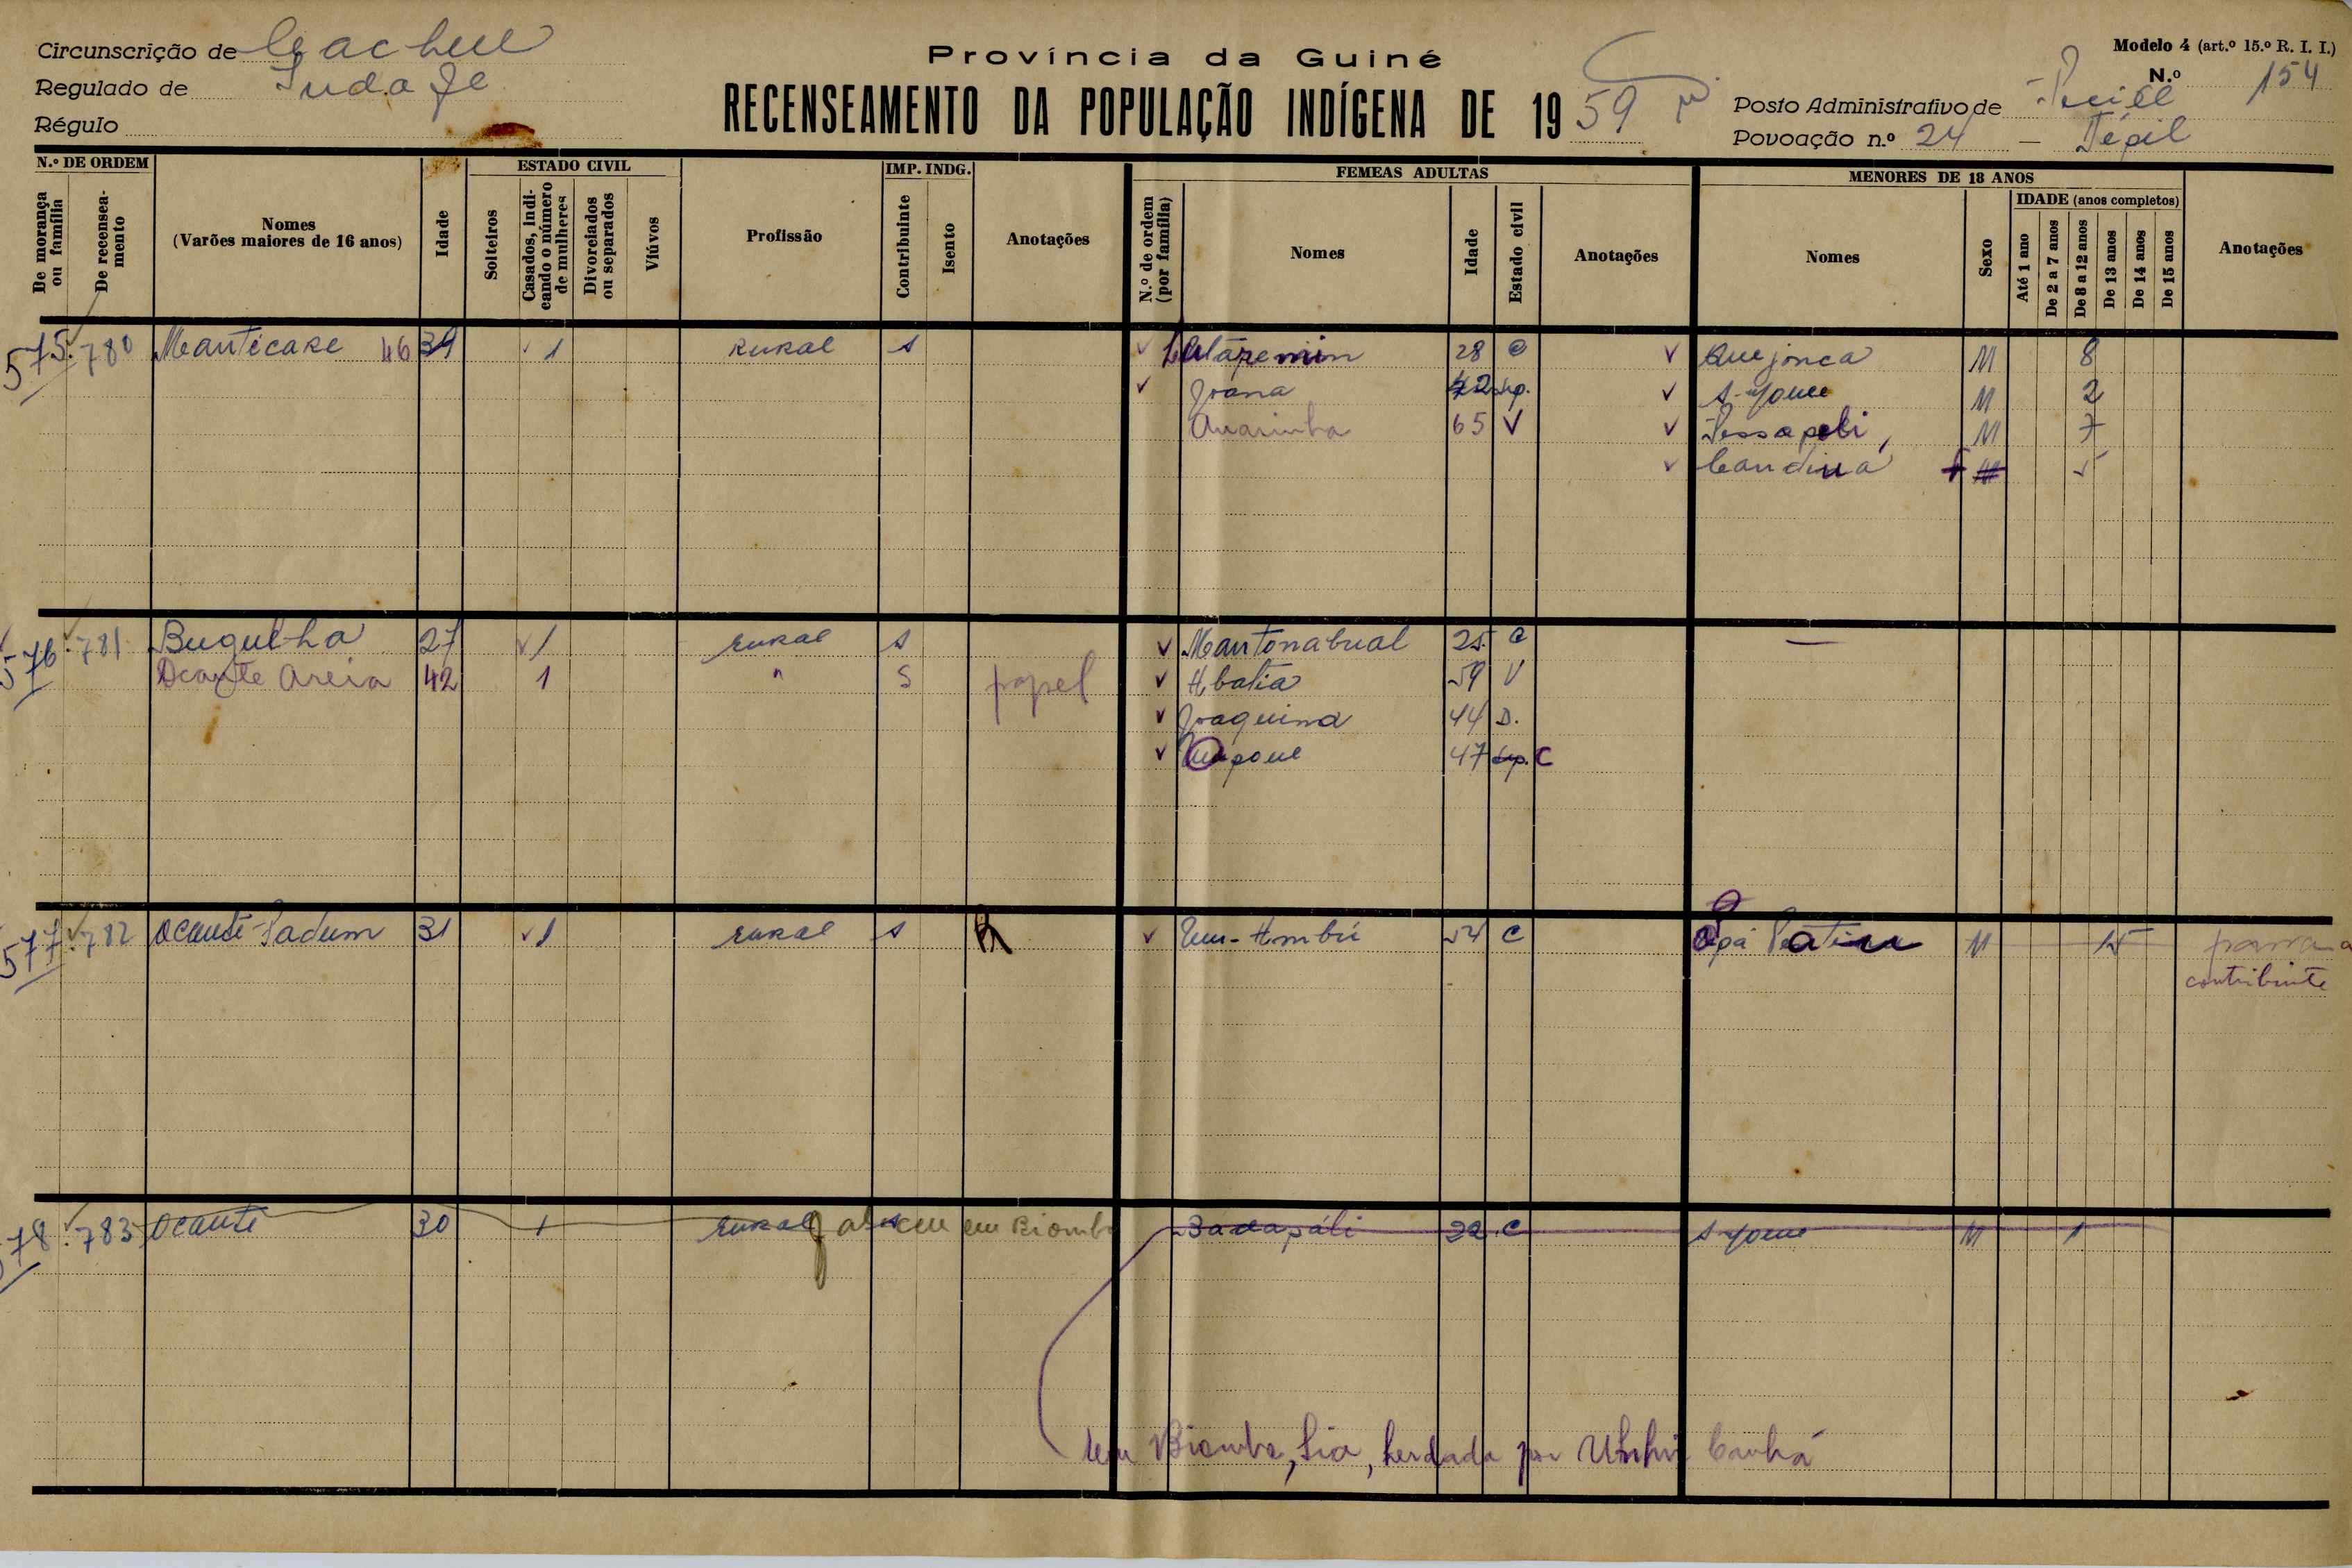 Circunscrição de Cacheu
Regulado de
Régulo
Província da Guiné
RECENSEAMENTO DA POPULAÇÃO INDÍGENA DE 1959
Modelo 4 (art.º 15.º R. I. I.)
N.º 154
Posto Administrativo de
Povoação n.º 24 —
N.º DE ORDEM
De morança ou família
De recenseamento
Nomes
(Varões maiores de 16 anos)
Idade
ESTADO CIVIL
Solteiros
Casados, indicando o número de mulheres
Divorciados ou separados
Viúvos
Profissão
IMP. INDG.
Contribuinte
Isento
Anotações
FEMEAS ADULTAS
N.º de ordem (por família)
Nomes
Idade
Estado civil
Anotações
MENORES DE 18 ANOS
Nomes
Sexo
IDADE (anos completos)
Até 1 ano
De 2 a 7 anos
De 8 a 12 anos
De 13 anos
De 14 anos
De 15 anos
Anotações
575 780 Mantecare 46 39 1 Rural s 28 C Quejonca M 8
Joana sep. M 2
65 V M 7
Candina F 5
576 781 Bugulha 27 1 Rural s Mantonabual 25 C —
Ocante Areia 42 1 " S papel Hbatia 59 V
Joaquina 44 D.
47 sep. C
577 782 Ocante Padum 31 1 Rural s 54 C M 15
contribuinte
78 783 Ocante 30 1 Rural faleceu em Biombo s Badapáli 22 C M 1
em Biombo, herdada por